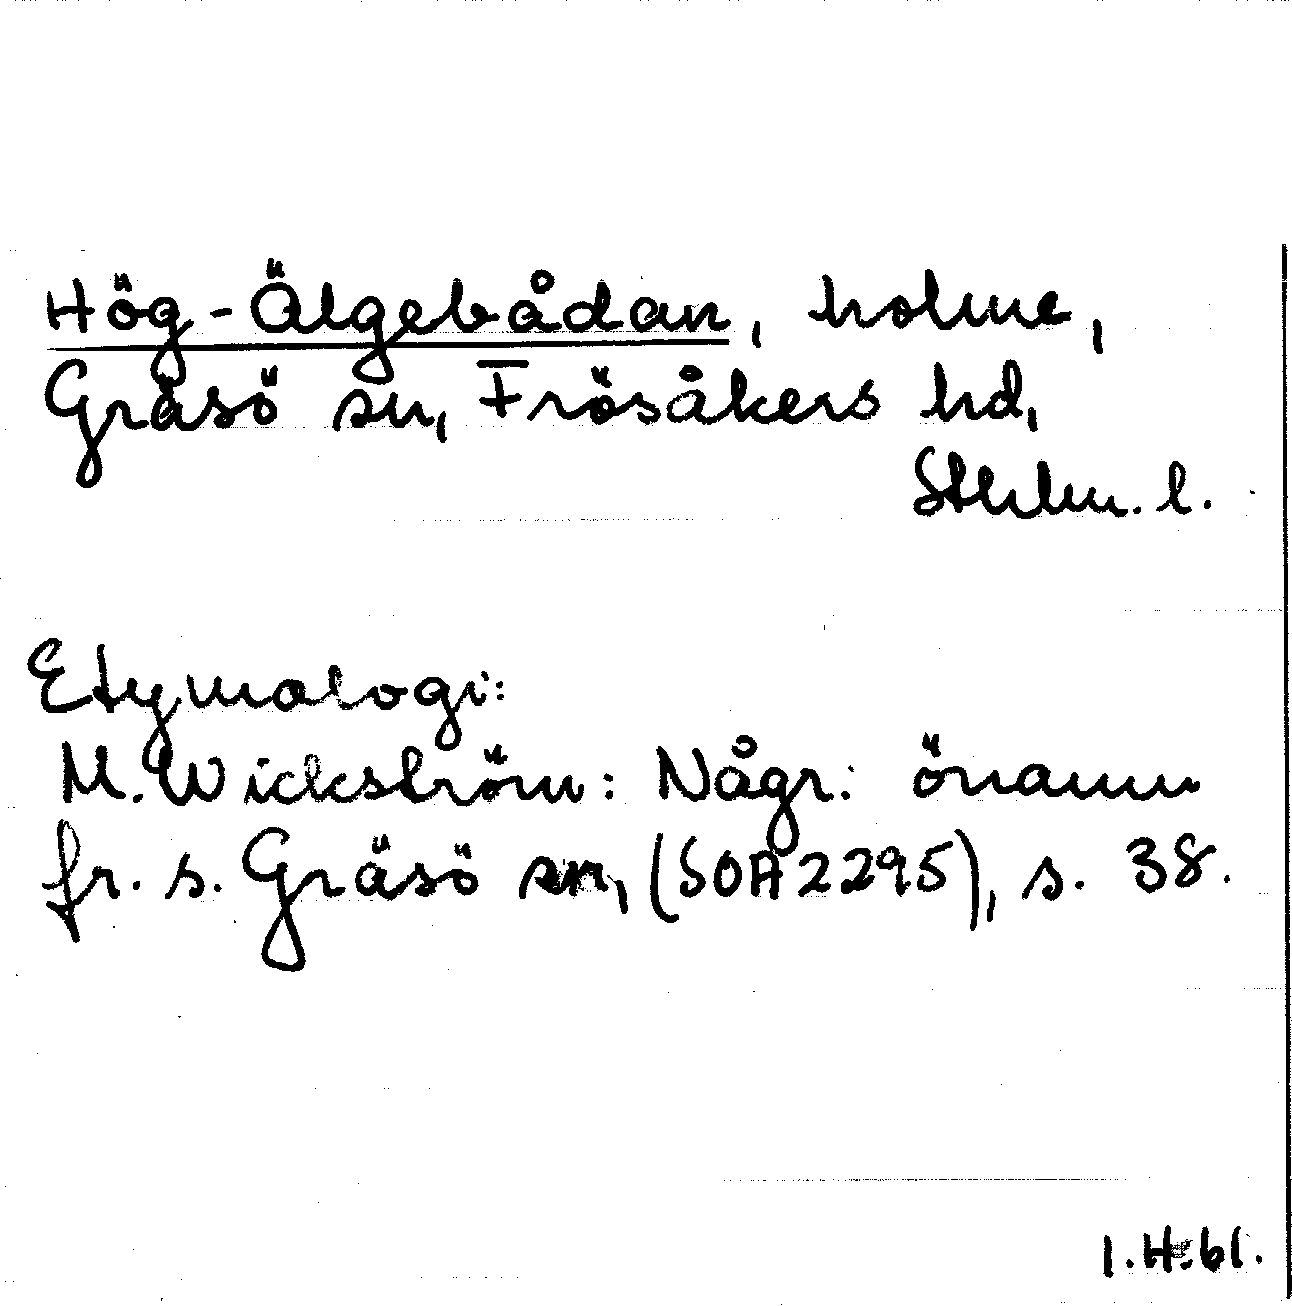 Hög-Älgebådan, holme,
Gräsö sn, Frösåkers hd,
Sthlm. l.
Etymologi:
M. Wickström: Någr. önamn
fr. s. Gräsö sn, (SOA 2295), s. 38.
I.H. 61.